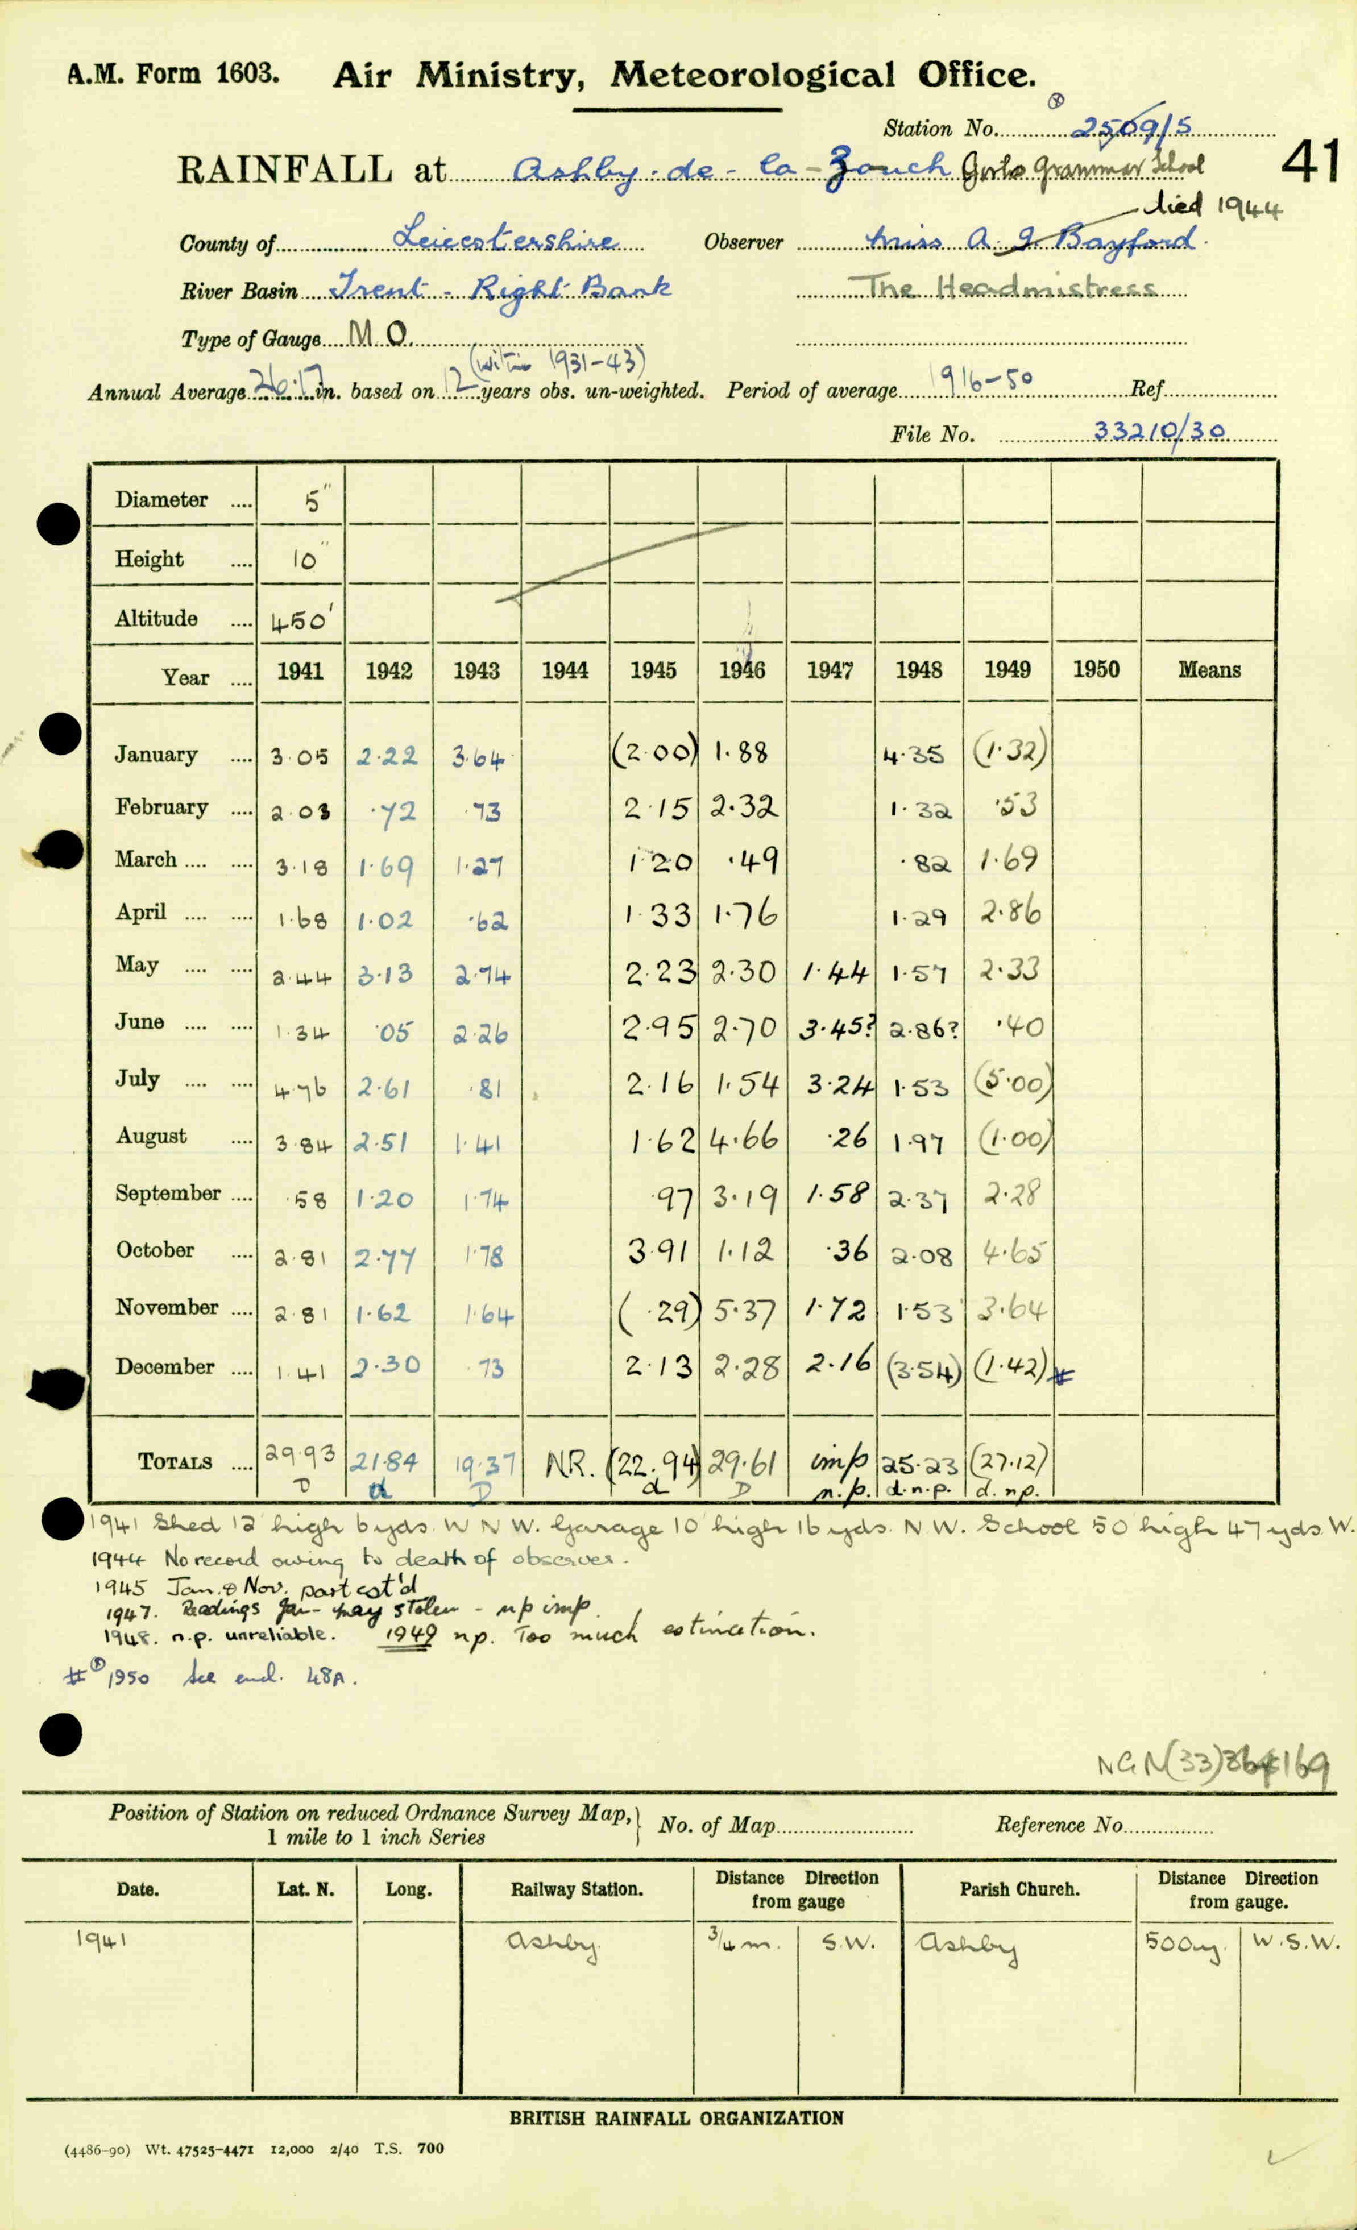 A.M. Form 1603. Air Ministry, Meteorological Office.
Station No. 2509/5
RAINFALL at Ashby-de-la-Zouch Girls Grammar School 41
died 1944
County of Leicestershire Observer Miss A. J. Bayford.
River Basin Trent - Right Bank The Headmistress
Type of Gauge M O.
(within 1931-43)
Annual Average 26.17 in. based on 12 years obs. un-weighted. Period of average 1916-50 Ref.
File No. 33210/30
Diameter .... 5"
Height .... 10"
Altitude .... 450'
Year .... 1941 1942 1943 1944 1945 1946 1947 1948 1949 1950 Means
January .... 3.05 2.22 3.64 (2.00) 1.88 4.35 (1.32)
February .... 2.03 .72 .73 2.15 2.32 1.32 .53
March .... .... 3.18 1.69 1.27 1.20 .49 .82 1.69
April .... .... 1.68 1.02 .62 1.33 1.76 1.29 2.86
May .... .... 2.44 3.13 2.74 2.23 2.30 1.44 1.57 2.33
June .... .... 1.34 .05 2.26 2.95 2.70 3.45? 2.86? .40
July .... .... 4.76 2.61 .81 2.16 1.54 3.24 1.53 (5.00)
August .... 3.84 2.51 1.41 1.62 4.66 .26 1.97 (1.00)
September .... .58 1.20 1.74 .97 3.19 1.58 2.37 2.28
October .... 2.81 2.77 1.78 3.91 1.12 .36 2.08 4.65
November .... 2.81 1.62 1.64 (.29) 5.37 1.72 1.53 3.64
December .... 1.41 2.30 .73 2.13 2.28 2.16 (3.54) (1.42) #
TOTALS .... 29.93 21.84 19.37 N.R. (22.94) 29.61 imp 25.23 (27.12)
D d D d D n.p. d.n.p. d. np.
1941 Shed 12' high 6 yds. W N W. Garage 10' high 16 yds. N W. School 50' high 47 yds. W.
1944 No record owing to death of observer.
1945 Jan. & Nov. part est'd
1947. Readings Jan - May stolen - np imp.
1948. n.p. unreliable. 1949 np. Too much estimation.
# 1950 See encl. 48A.
NGN(33)364169
Position of Station on reduced Ordnance Survey Map, } No. of Map Reference No.
1 mile to 1 inch Series
Date. Lat. N. Long. Railway Station. Distance Direction from gauge Parish Church. Distance Direction from gauge.
1941 Ashby. 3/4 m. S.W. Ashby 500 y. W.S.W.
BRITISH RAINFALL ORGANIZATION
(4486-90) Wt. 47525-4471 12,000 2/40 T.S. 700